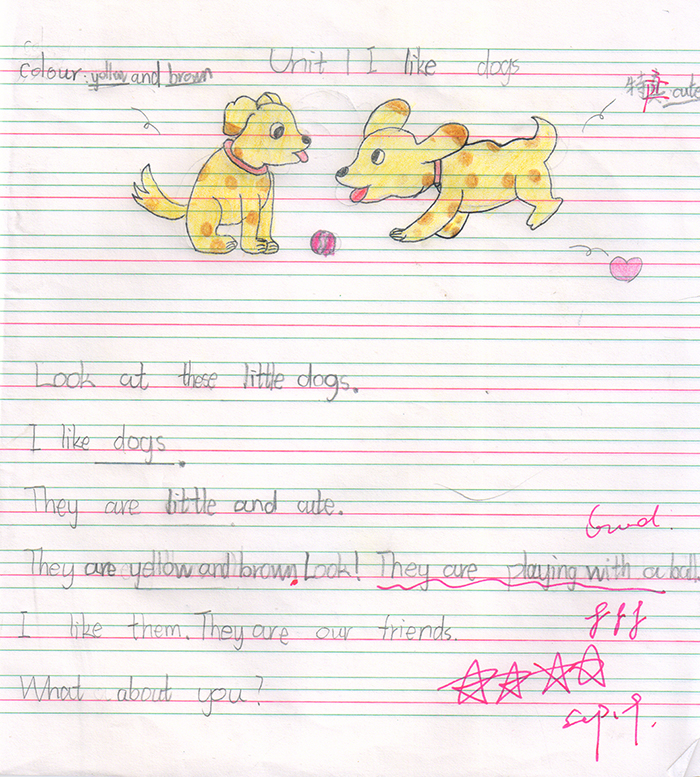 Unit 1 I like dogs
colour: yellow and brown
特点: cute
Look at these little dogs.
I like dogs.
They are little and cute.
Good.
They are yellow and brown. Look! They are playing with a ball.
I like them. They are our friends.
What about you?